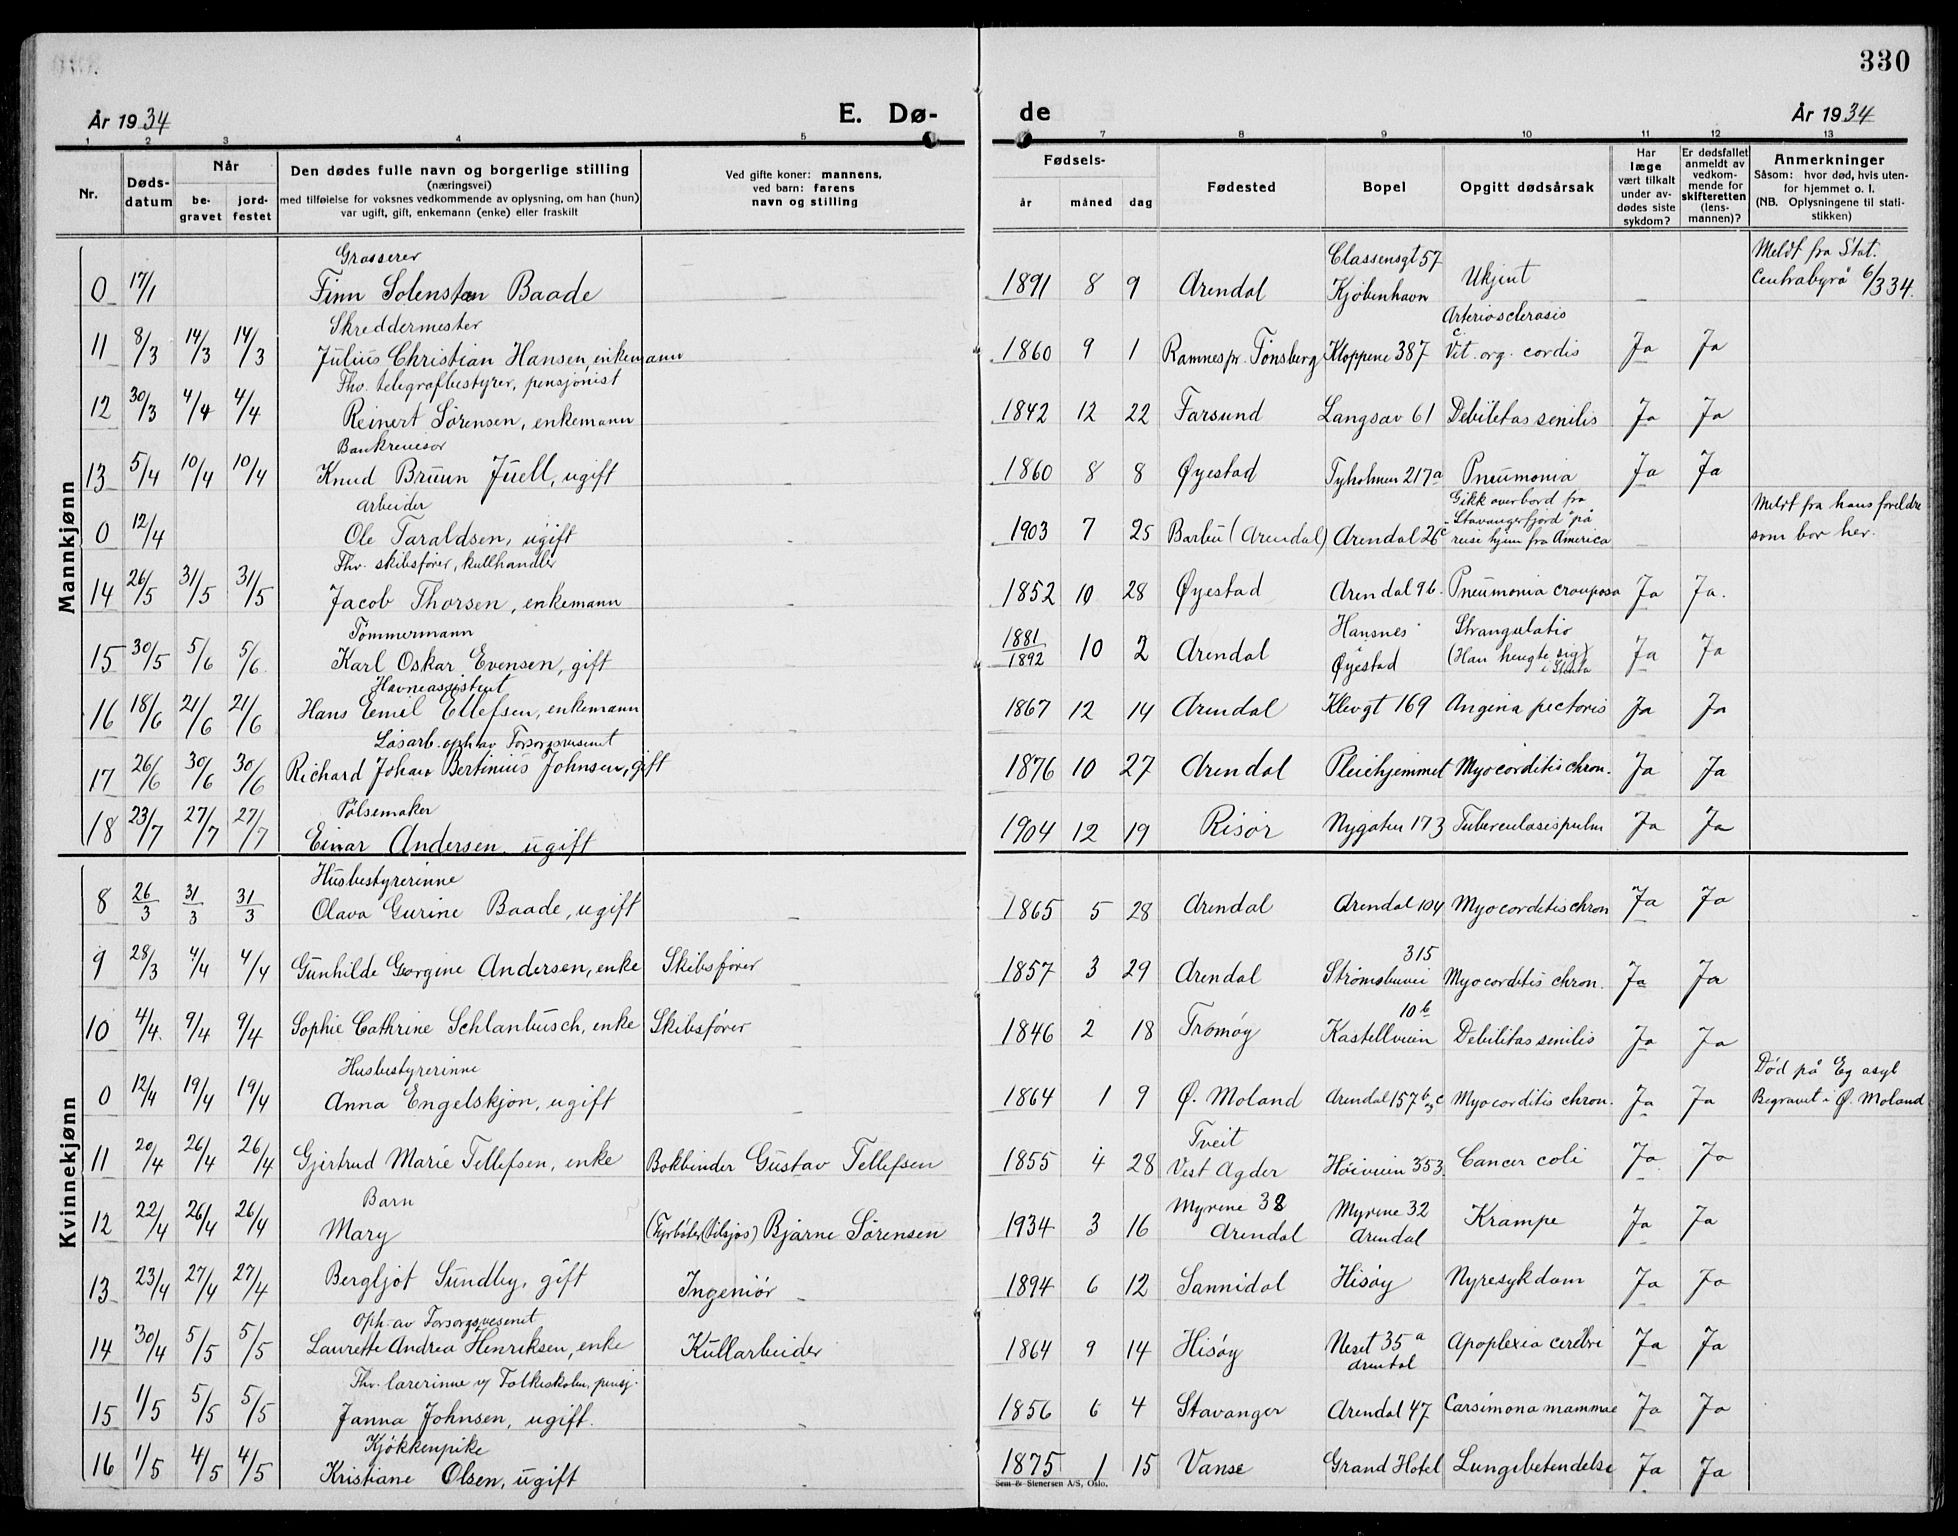 330
År 1934 E. Dø- de År 1934
1 2 3 4 5 7 8 9 10 11 12 13
Nr. Døds-datum Når be-gravet jord-festet
Den dødes fulle navn og borgerlige stilling
(næringsvei)
med tilføielse for voksnes vedkommende av oplysning, om han (hun)
var ugift, gift, enkemann (enke) eller fraskilt
Ved gifte koner: mannens,
ved barn: farens
navn og stilling
Fødsels-
år måned dag
Fødested
Bopel
Opgitt dødsårsak
Har læge vært tilkalt under av-dødes siste sykdom?
Er dødsfallet anmeldt av vedkom-mende for skifteretten (lens-mannen)?
Anmerkninger
Såsom: hvor død, hvis uten-
for hjemmet o. l.
(NB. Oplysningene til stati-
stikken)
Mannkjønn
Grosserer Classensgt 57 Meldt fra Stat.
0 17/1 Finn Solensten Baade - 1891 8 9 Arendal Kjøbenhavn Ukjent - Centralbyrå 6/3 34.
Skreddermester Arteriosclerosis
11 8/3 14/3 14/3 Julius Christian Hansen, enkemann - 1860 9 1 Ramnes pr. Tönsberg Kloppene 387 c. Vit. org. cordis Ja Ja
Fhv. telegrafbestyrer, pensjonist
12 30/3 4/4 4/4 Reinert Sørensen, enkemann - 1842 12 22 Farsund Langsav 61 Debilitas senilis Ja Ja
Bankrevisor
13 5/4 10/4 10/4 Knud Bruun Juell, ugift - 1860 8 8 Øyestad Tyholmen 217a Pneumonia Ja Ja
Arbeider Gikk overbord fra Meldt fra hans foreldre
0 12/4 Ole Taraldsen, ugift - 1903 7 25 Barbu (Arendal) Arendal 26c "Stavangerfjord" på reise hjem fra America - som bor her.
Fhv. skibsfører, kullhandler
14 26/5 31/5 31/5 Jacob Thorsen, enkemann - 1852 10 28 Øyestad Arendal 96. Pneumonia crouposa Ja Ja.
Tömmermann Hansnes Strangulatio
15 30/5 5/6 5/6. Karl Oskar Evensen, gift - 1881/1892 10 2 Arendal i Øyestad (Han hengte sig) Ja Ja
Havneassistent
16 18/6 21/6 21/6 Hans Emil Ellefsen, enkemann - 1867 12 14 Arendal Klevgt 169 Angina pectoris Ja Ja
Løsarb. oph. av Forsorgsvesenet
17 26/6 30/6 30/6 Richard Johan Bertinius Johnsen, gift - 1876 10 27 Arendal Pleiehjemmet Myocorditis chron. Ja Ja
Pölsemaker
18 23/7 27/7 27/7 Einar Andersen, ugift - 1904 12 19 Risör Nygaten 173 Tuberculosis pulm Ja Ja
Kvinnekjønn
Husbestyrerinne
8 26/3 31/3 31/3 Olava Gurine Baade, ugift - 1865 5 28 Arendal Arendal 104 Myocorditis chron Ja Ja
315
9 28/3 4/4 4/4 Gunhilde Georgine Andersen, enke Skibsfører - 1857 3 29 Arendal Strømsbuvei Myocorditis chron. Ja Ja
10b
10 4/4. 9/4 9/4 Sophie Cathrine Schlanbusch, enke Skibsfører - 1846 2 18 Tromøy Kastellveien Debilitas senilis Ja Ja
Husbestyrerinne Död på Eg asyl
0 12/4 19/4 19/4 Anna Engelskjön, ugift - 1864 1 9 Ø. Moland Arendal 157b og c Myocorditis chron. Ja Ja Begravet i Ø. Moland
Tveit
11 20/4 26/4 26/4 Gjertrud Marie Tellefsen, enke Bokbinder Gustav Tellefsen 1855 4 28 Vest Agder Höiveien 353. Cancer coli Ja Ja
Barn Myrene 32 Myrene 32
12 22/4 26/4 26/4 Mary (Fyrböter tilsjøs) Bjarne Sörensen 1934 3 16 Arendal Arendal Krampe Ja Ja
13 23/4 27/4 27/4 Bergljot Sundby, gift Ingeniör - 1894 6 12 Sannidal Hisöy Nyresykdom Ja Ja
Oph. av Forsorgsvesenet
14 30/4 5/5 5/5 Laurette Andrea Henriksen, enke Kullarbeider 1864 9 14 Hisöy Neset 35a Arendal Apoplexia cerebri Ja Ja
Fhv. lærerinne v/ Folkeskolen, pensj.
15 1/5 5/5 5/5 Janna Johnsen, ugift. - 1856 6 4 Stavanger Arendal 47 Carsimona mammae Ja Ja
Kjøkkenpike
16 1/5 4/5 4/5 Kristiane Olsen, ugift - 1875 1 15 Vanse Grand Hotel Lungebetendelse Ja Ja
Sem & Stenersen A/S, Oslo.